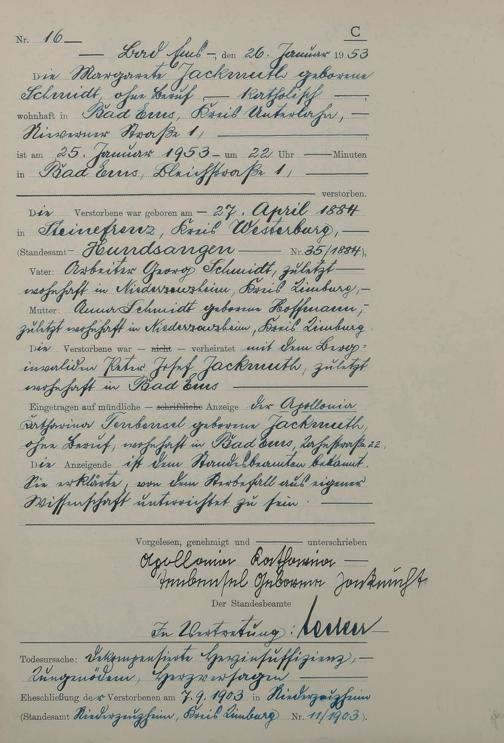 C
Nr. 16
Bad Ems, den 26. Januar 1953
Die Margarete Jackmuth geborene
Schmidt, ohne Beruf — katholisch —,
wohnhaft in Bad Ems, Kreis Unterlahn, —
Nieverner Straße 1,
ist am 25. Januar 1953 um 22 Uhr — Minuten
in Bad Ems, Bleichstraße 1,
verstorben.
Die Verstorbene war geboren am 27. April 1884
in Steinefrenz, Kreis Westerburg, —
(Standesamt Hundsangen — Nr. 35/1884),
Vater: Arbeiter Georg Schmidt, zuletzt
wohnhaft in Niederzeuzheim, Kreis Limburg, —
Mutter: Anna Schmidt geborene Hoffmann,
zuletzt wohnhaft in Niederzeuzheim, Kreis Limburg.
Die Verstorbene war — nicht — verheiratet mit dem Berg-
invaliden Peter Josef Jackmuth, zuletzt
wohnhaft in Bad Ems
Eingetragen auf mündliche — schriftliche — Anzeige der Apollonia
Katharina geborene Jackmuth,
ohne Beruf, wohnhaft in Bad Ems, 22.
Die Anzeigende ist dem Standesbeamten bekannt.
Sie erklärte, von dem Sterbefall aus eigener
Wissenschaft unterrichtet zu sein.
Vorgelesen, genehmigt und — unterschrieben
Apollonia Katharina
Geborene
Der Standesbeamte
In Vertretung:
Todesursache: Dekompensierte Herzinsuffizienz, —
Lungenödem, Herzversagen
Eheschließung der Verstorbenen am 7.9.1903 in Niederzeuzheim
(Standesamt Niederzeuzheim, Kreis Limburg Nr. 11/1903).